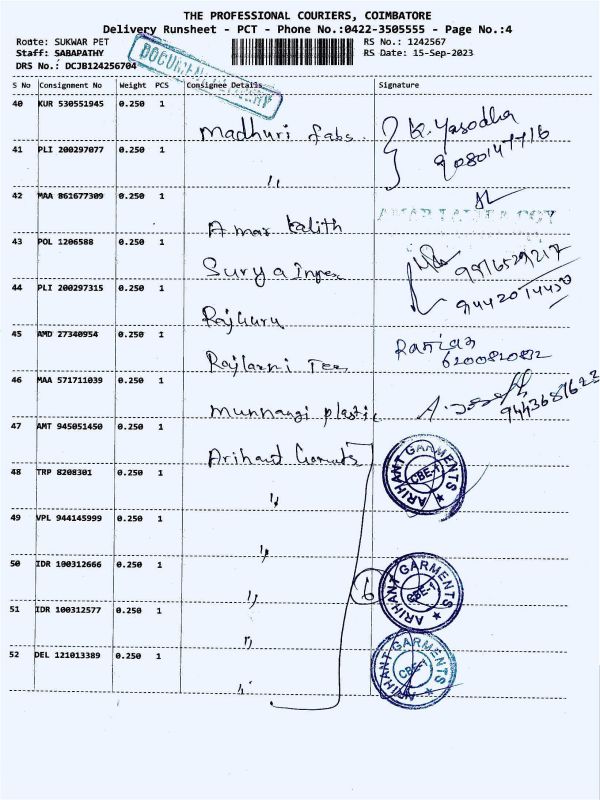 THE PROFESSIONAL COURIERS, COIMBATORE
Delivery Runsheet - PCT - Phone No.:0422-3505555 - Page No.:4
Route: SUKWAR PET RS No.: 1242567
Staff: SABAPATHY RS Date: 15-Sep-2023
DRS No.: DCJB124256704
S No Consignment No Weight PCS Consignee Details Signature
40 KUR 530551945 0.250 1
Madhuri fabs. K. Yasodha
9080147716
41 PLI 200297077 0.250 1
,,
42 MAA 861677309 0.250 1
Amar Lalith
43 POL 1206588 0.250 1
Surya Impex
44 PLI 200297315 0.250 1
9442014450
Rajguru
45 AMD 27340954 0.250 1
6200820812
46 MAA 571711039 0.250 1
plastic
9443681623
47 AMT 945051450 0.250 1
Arihant ARIHANT GARMENTS
CBE-1
48 TRP 8208301 0.250 1
,,
49 VPL 944145999 0.250 1
,,
50 IDR 100312666 0.250 1
,, 6 ARIHANT GARMENTS
CBE-1
51 IDR 100312577 0.250 1
,,
52 DEL 121013389 0.250 1
,, ARIHANT GARMENTS
CBE-1